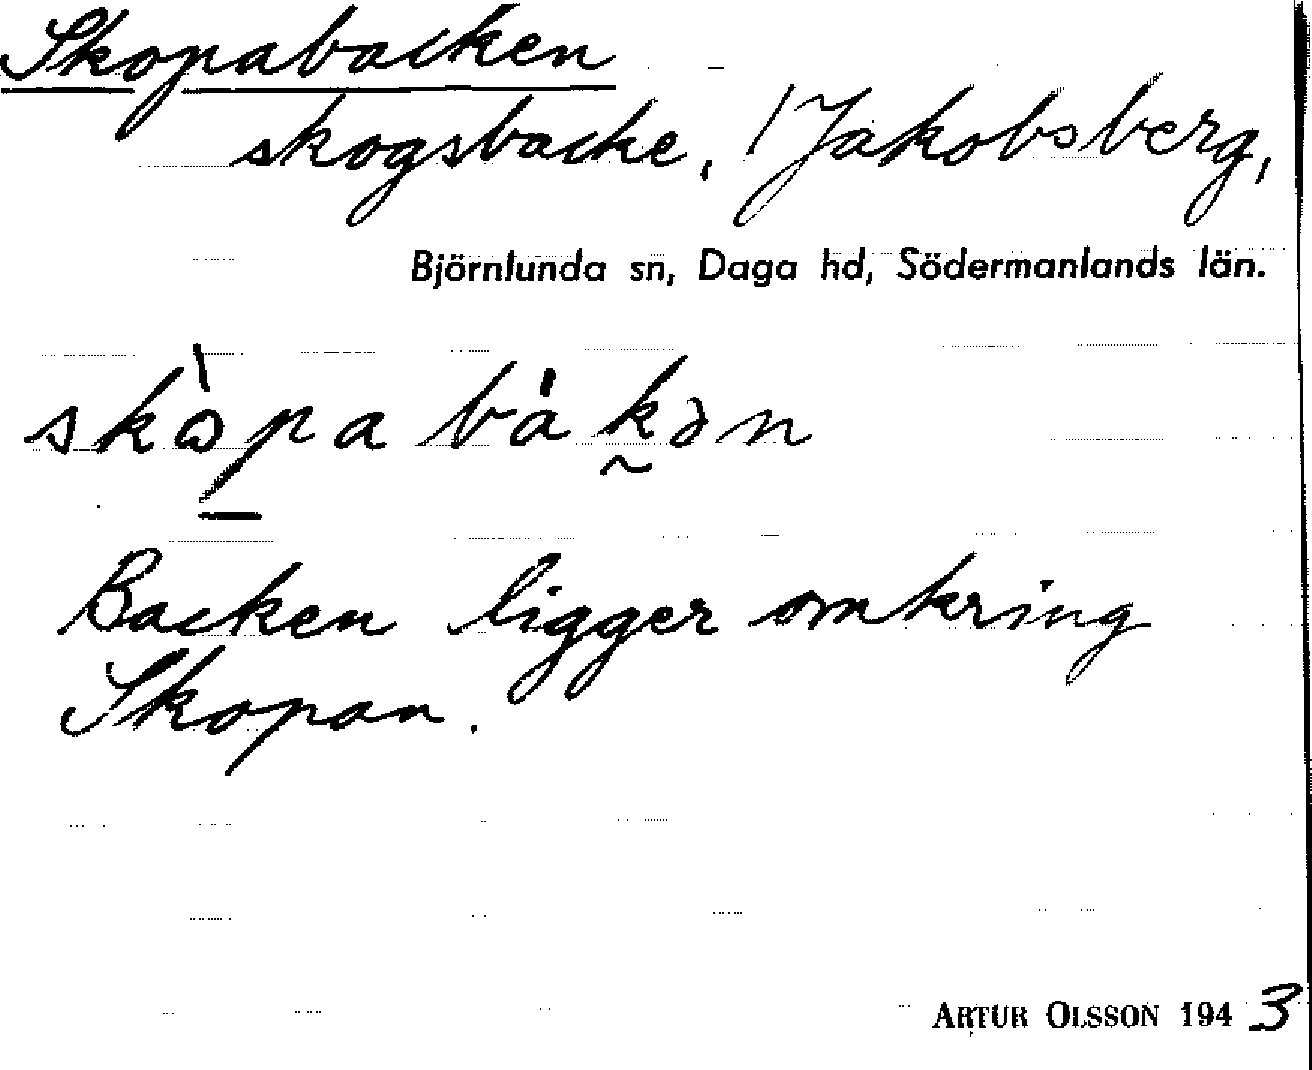 Skopabacken
skogsbacke, Jakobsberg,
Björnlunda sn, Daga hd, Södermanlands län.
skò̱pa bá k̰ən
Backen ligger omkring
Skopan.
ARTUR OLSSON 1943